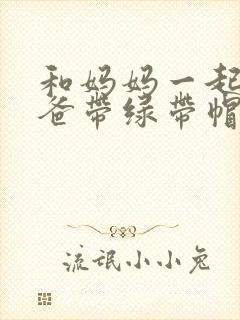 和妈妈一起
爸带绿带帽
流氓小小兔